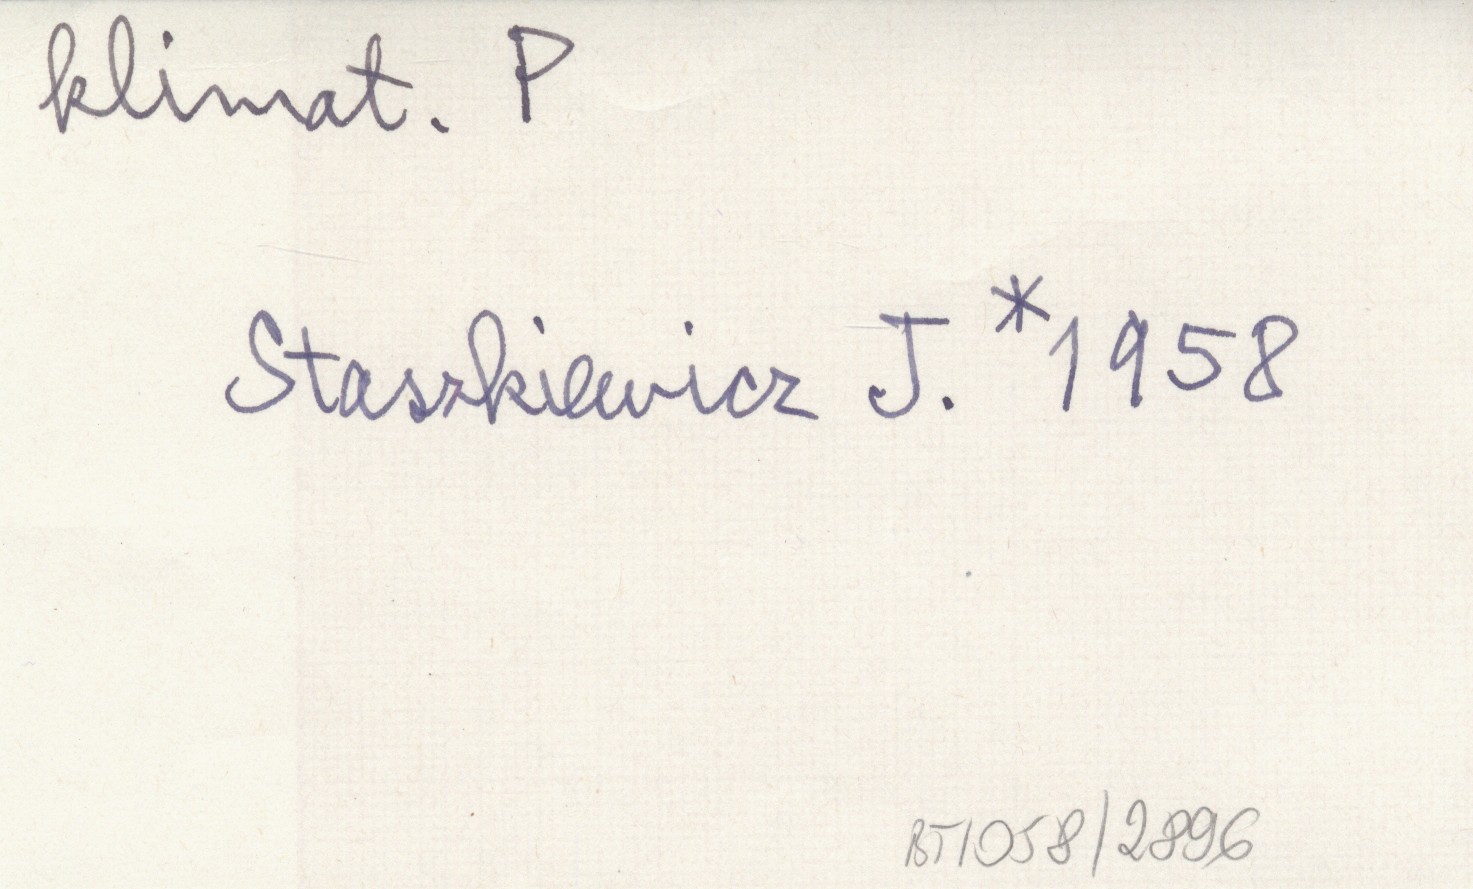 klimat. P
Staszkiewicz J. *1958
BT1058/2896